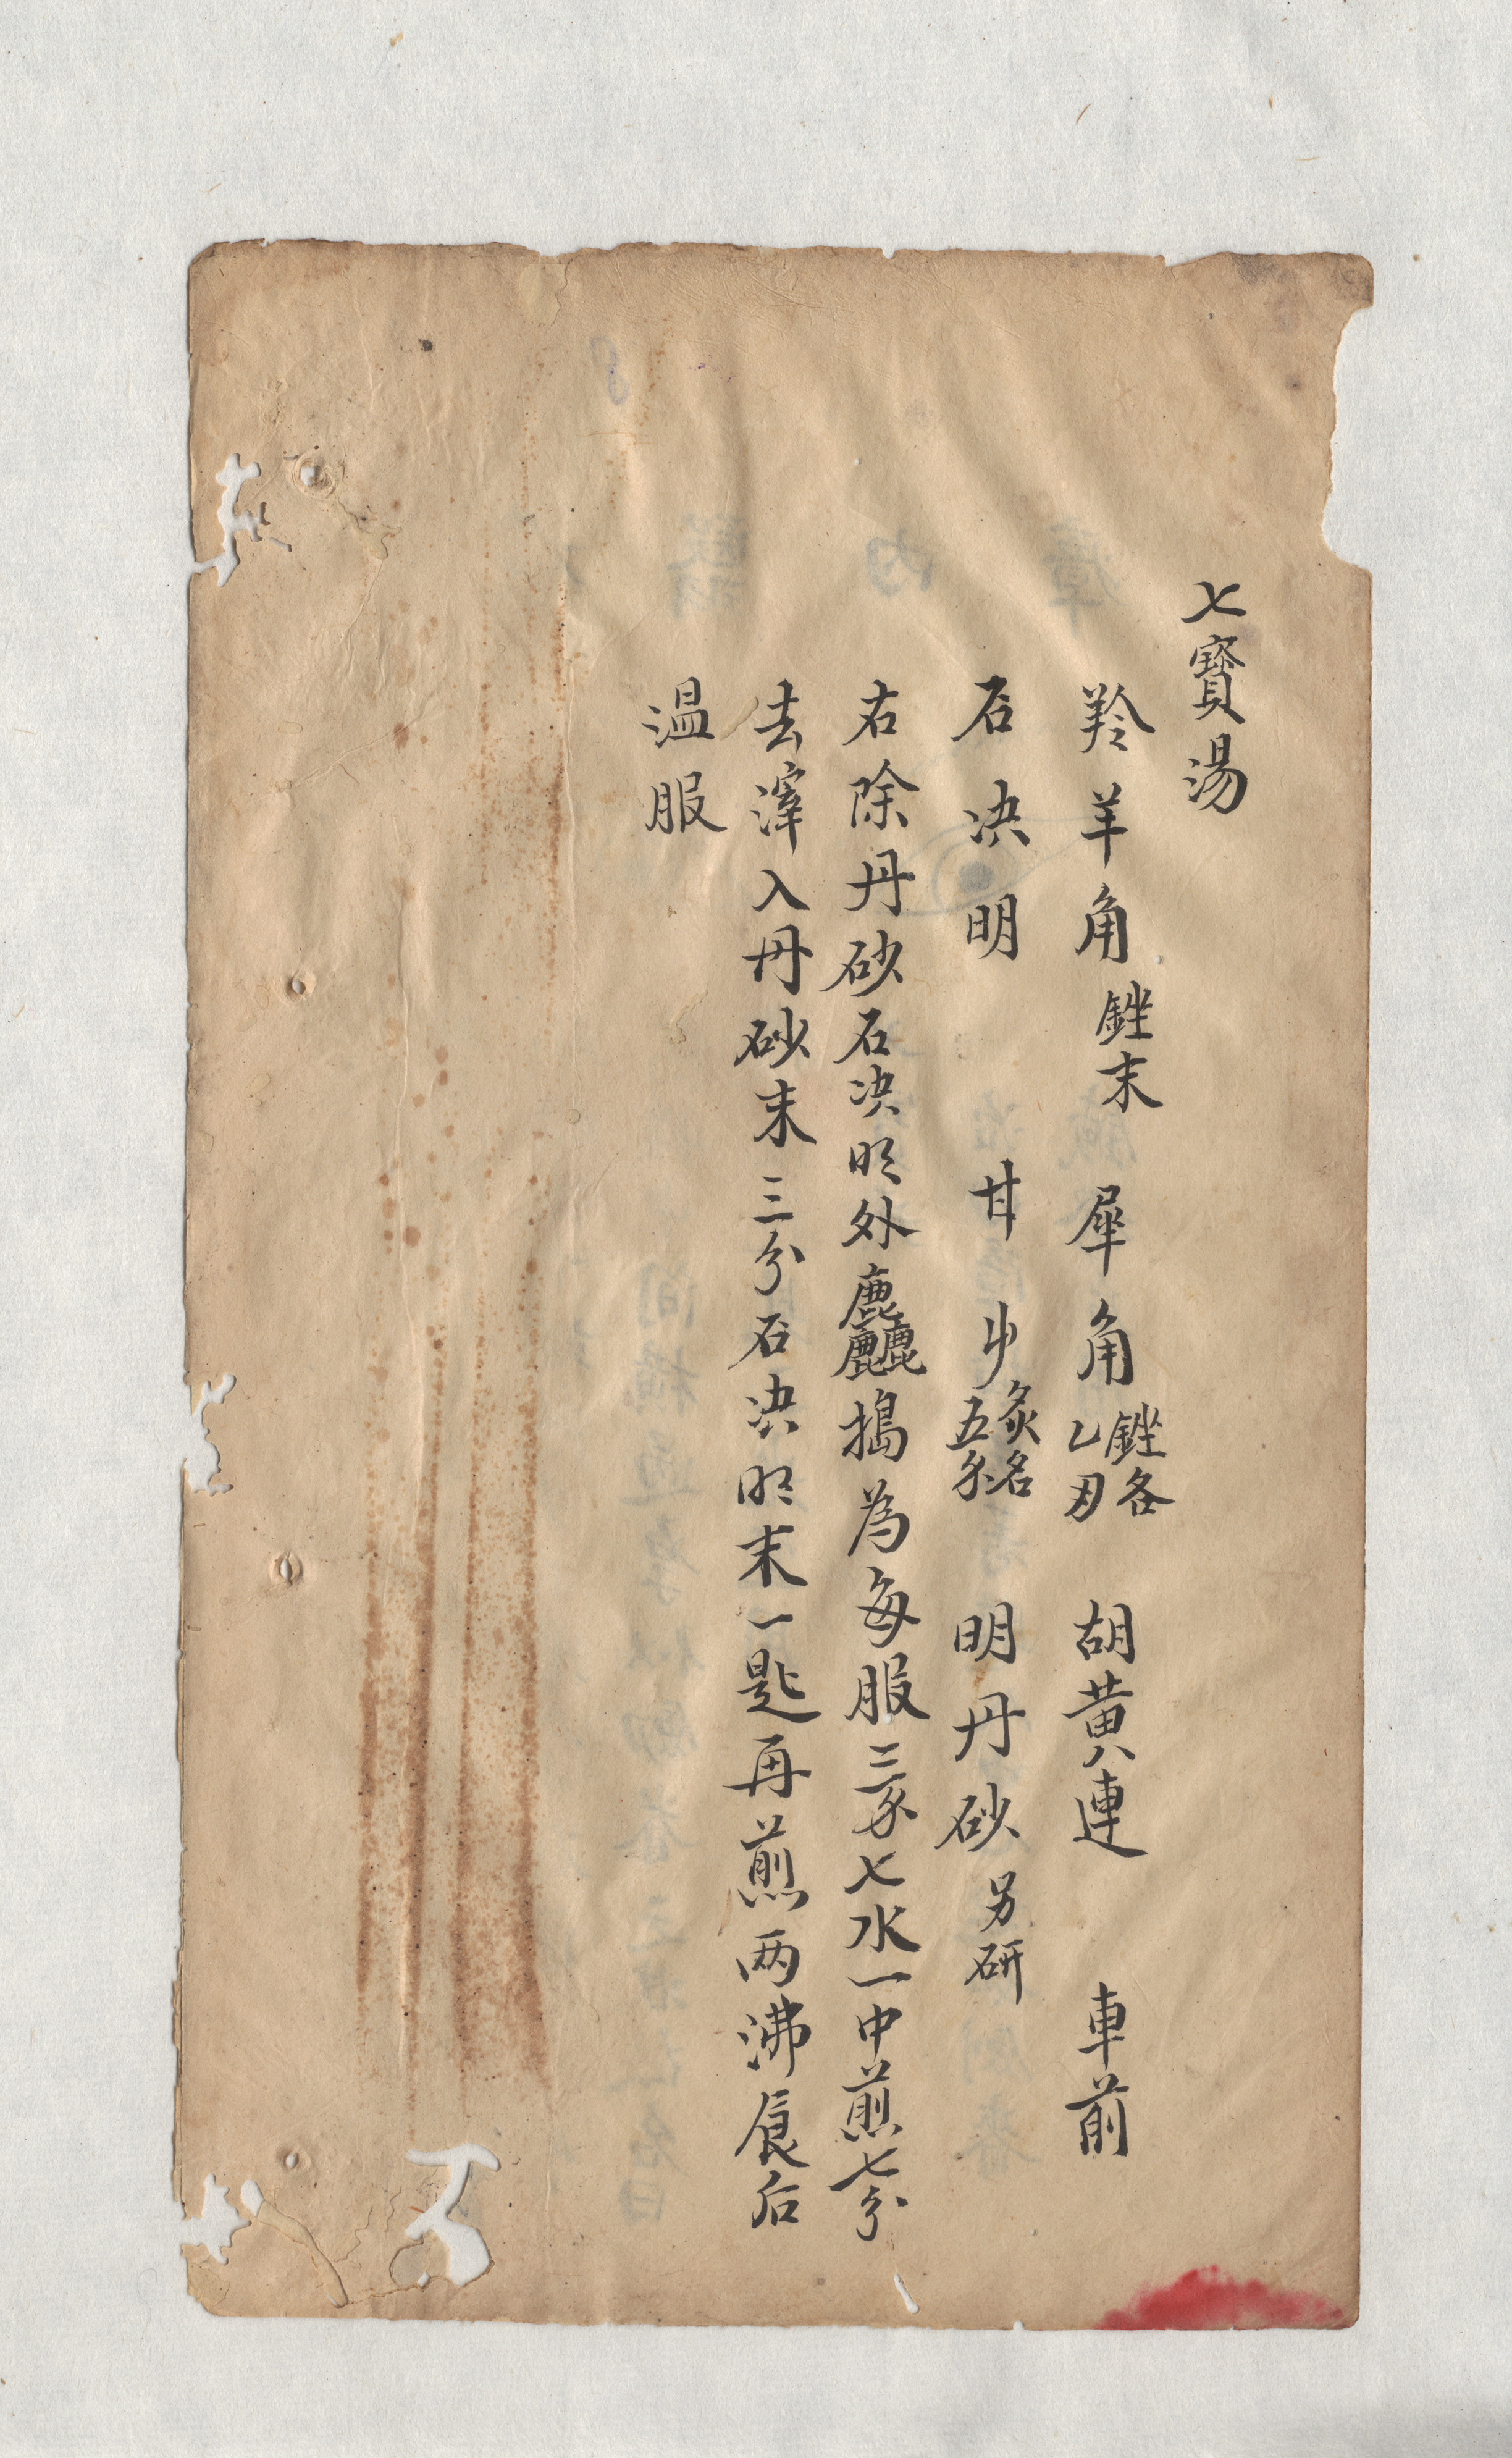 七寳湯
羚羊角銼末 犀角銼各乙刄 胡黄連 車前
石决明 甘屮炙各五分 明丹砂另研
右除丹砂石决明外麤搗為每服三錢七水一中煎七分
去滓入丹砂末三分石决明末一匙再煎两沸食后
温服